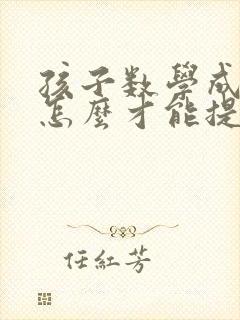 孩子数學成
怎麼才能提
任紅芳